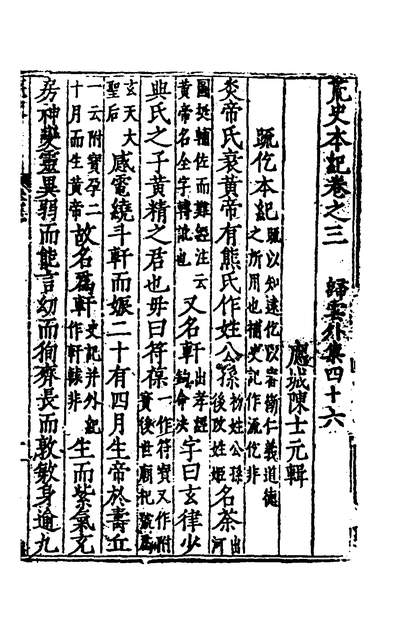 荒史本紀卷之三 歸雲外集四十六
應城陳士元輯
疏仡本紀 疏以知遠仡以審斷仁義道德之所用也補史記作流仡非
炎帝氏衰黃帝有熊氏作姓公孫 初姓公孫後改姓姬 名荼 出河
圖挺輔佐而難經注云黃帝名全字轉訛也 又名軒 出孝經鈎命決 字曰玄律少
典氏之子黃精之君也毋曰符葆 一作符寶又作附寶後世廟祀號爲
玄天大聖后 感電繞斗軒而娠二十有四月生帝於壽丘
一云附寶孕二十月而生黃帝 故名爲軒 史記并外紀作軒轅非 生而紫氣充
房神變靈異弱而能言幼而徇齊長而敦敏身逾九